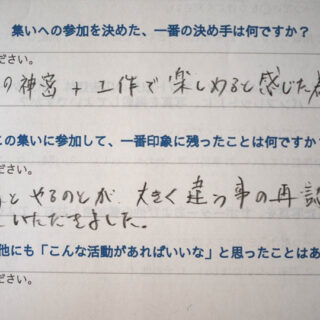 集いへの参加を決めた、一番の決め手は何ですか？
ださい。
の神宮＋工作で楽しめると感じた為
この集いに参加して、一番印象に残ったことは何ですか？
ださい。
とやるのとが、大きく違う事の再認
いただきました。
他にも「こんな活動があればいいな」と思ったことはあ
ださい。